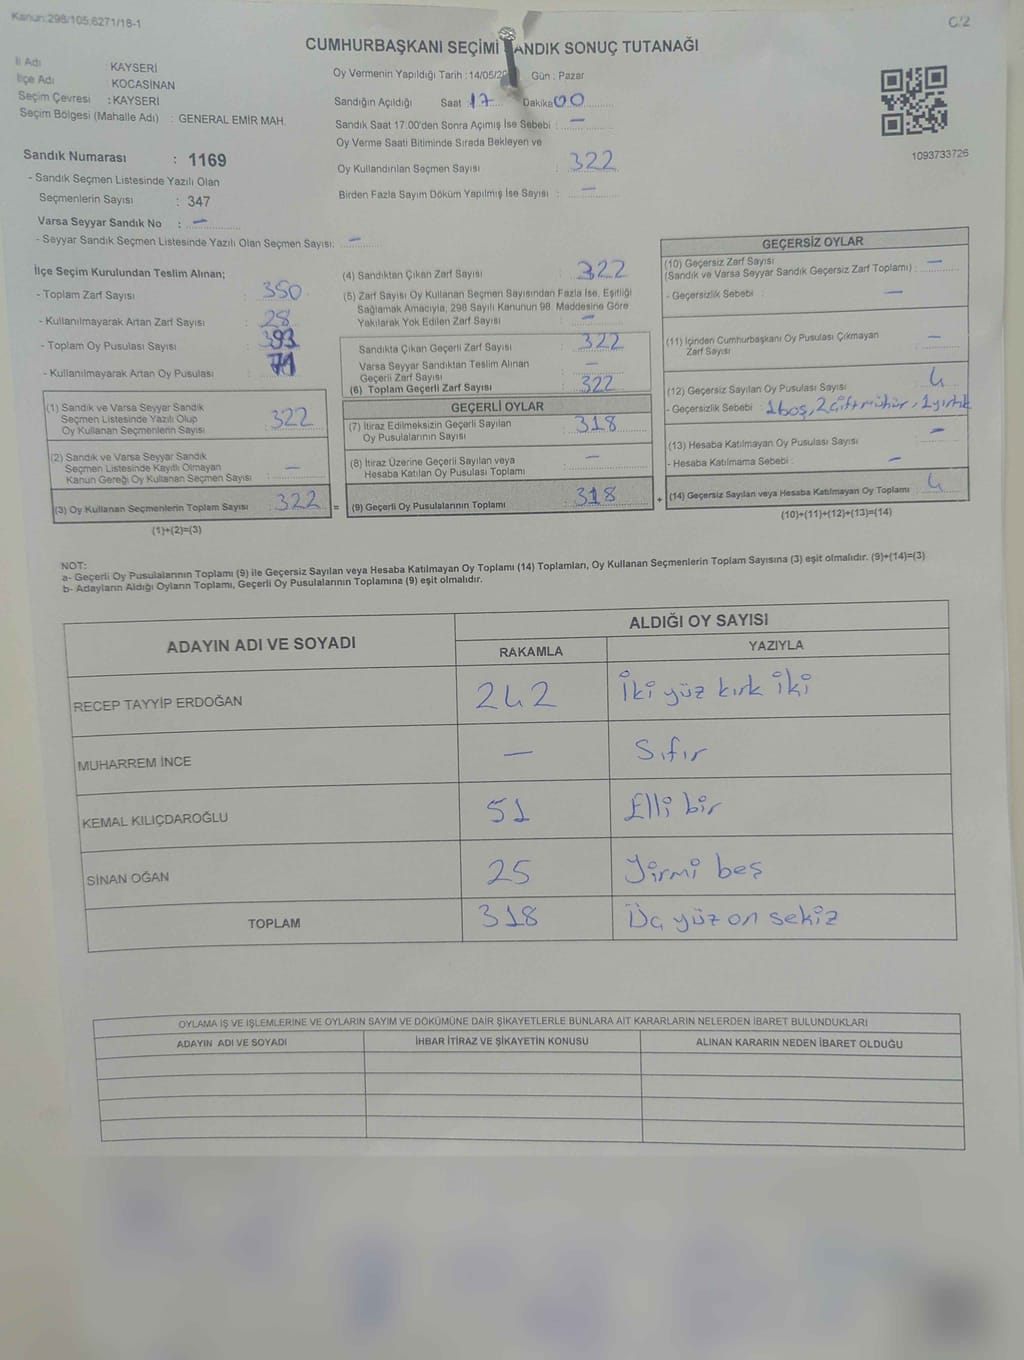 Kanun:298/105,6271/18-1
C/2
CUMHURBAŞKANI SEÇİMİ SANDIK SONUÇ TUTANAĞI
İl Adı : KAYSERİ
İlçe Adı : KOCASİNAN
Seçim Çevresi : KAYSERİ
Seçim Bölgesi (Mahalle Adı) : GENERAL EMİR MAH.
Oy Vermenin Yapıldığı Tarih :14/05/20 Gün : Pazar
Sandığın Açıldığı Saat :17 Dakika 00
Sandık Saat 17.00'den Sonra Açımış İse Sebebi : -
Oy Verme Saati Bitiminde Sırada Bekleyen ve
Oy Kullandırılan Seçmen Sayısı : 322
Birden Fazla Sayım Döküm Yapılmış İse Sayısı : -
1093733726
Sandık Numarası : 1169
- Sandık Seçmen Listesinde Yazılı Olan
Seçmenlerin Sayısı : 347
Varsa Seyyar Sandık No : -
- Seyyar Sandık Seçmen Listesinde Yazılı Olan Seçmen Sayısı: -
İlçe Seçim Kurulundan Teslim Alınan;
- Toplam Zarf Sayısı : 350
- Kullanılmayarak Artan Zarf Sayısı : 28
- Toplam Oy Pusulası Sayısı : 393
- Kullanılmayarak Artan Oy Pusulası : 71
(1) Sandık ve Varsa Seyyar Sandık
Seçmen Listesinde Yazılı Olup
Oy Kullanan Seçmenlerin Sayısı : 322
(2) Sandık ve Varsa Seyyar Sandık
Seçmen Listesinde Kayıtlı Olmayan
Kanun Gereği Oy Kullanan Seçmen Sayısı : -
(3) Oy Kullanan Seçmenlerin Toplam Sayısı : 322 =
(1)+(2)=(3)
(4) Sandıktan Çıkan Zarf Sayısı : 322
(5) Zarf Sayısı Oy Kullanan Seçmen Sayısından Fazla İse, Eşitliği
Sağlamak Amacıyla, 298 Sayılı Kanunun 98. Maddesine Göre
Yakılarak Yok Edilen Zarf Sayısı : -
Sandıkta Çıkan Geçerli Zarf Sayısı : 322
Varsa Seyyar Sandıktan Teslim Alınan
Geçerli Zarf Sayısı : -
(6) Toplam Geçerli Zarf Sayısı : 322
GEÇERLİ OYLAR
(7) İtiraz Edilmeksizin Geçerli Sayılan
Oy Pusulalarının Sayısı : 318
(8) İtiraz Üzerine Geçerli Sayılan veya
Hesaba Katılan Oy Pusulası Toplamı : -
(9) Geçerli Oy Pusulalarının Toplamı : 318 +
GEÇERSİZ OYLAR
(10) Geçersiz Zarf Sayısı
(Sandık ve Varsa Seyyar Sandık Geçersiz Zarf Toplamı) : -
- Geçersizlik Sebebi : -
(11) İçinden Cumhurbaşkanı Oy Pusulası Çıkmayan
Zarf Sayısı : -
(12) Geçersiz Sayılan Oy Pusulası Sayısı : 4
- Geçersizlik Sebebi : 1 boş, 2 çift mühür, 1 yırtık
(13) Hesaba Katılmayan Oy Pusulası Sayısı : -
- Hesaba Katılmama Sebebi : -
(14) Geçersiz Sayılan veya Hesaba Katılmayan Oy Toplamı : 4
(10)+(11)+(12)+(13)=(14)
NOT:
a- Geçerli Oy Pusulalarının Toplamı (9) ile Geçersiz Sayılan veya Hesaba Katılmayan Oy Toplamı (14) Toplamları, Oy Kullanan Seçmenlerin Toplam Sayısına (3) eşit olmalıdır. (9)+(14)=(3)
b- Adayların Aldığı Oyların Toplamı, Geçerli Oy Pusulalarının Toplamına (9) eşit olmalıdır.
ADAYIN ADI VE SOYADI
ALDIĞI OY SAYISI
RAKAMLA YAZIYLA
RECEP TAYYİP ERDOĞAN 242 İki yüz kırk iki
MUHARREM İNCE - Sıfır
KEMAL KILIÇDAROĞLU 51 Elli bir
SİNAN OĞAN 25 Yirmi beş
TOPLAM 318 Üç yüz on sekiz
OYLAMA İŞ VE İŞLEMLERİNE VE OYLARIN SAYIM VE DÖKÜMÜNE DAİR ŞİKAYETLERLE BUNLARA AİT KARARLARIN NELERDEN İBARET BULUNDUKLARI
ADAYIN ADI VE SOYADI İHBAR İTİRAZ VE ŞİKAYETİN KONUSU ALINAN KARARIN NEDEN İBARET OLDUĞU